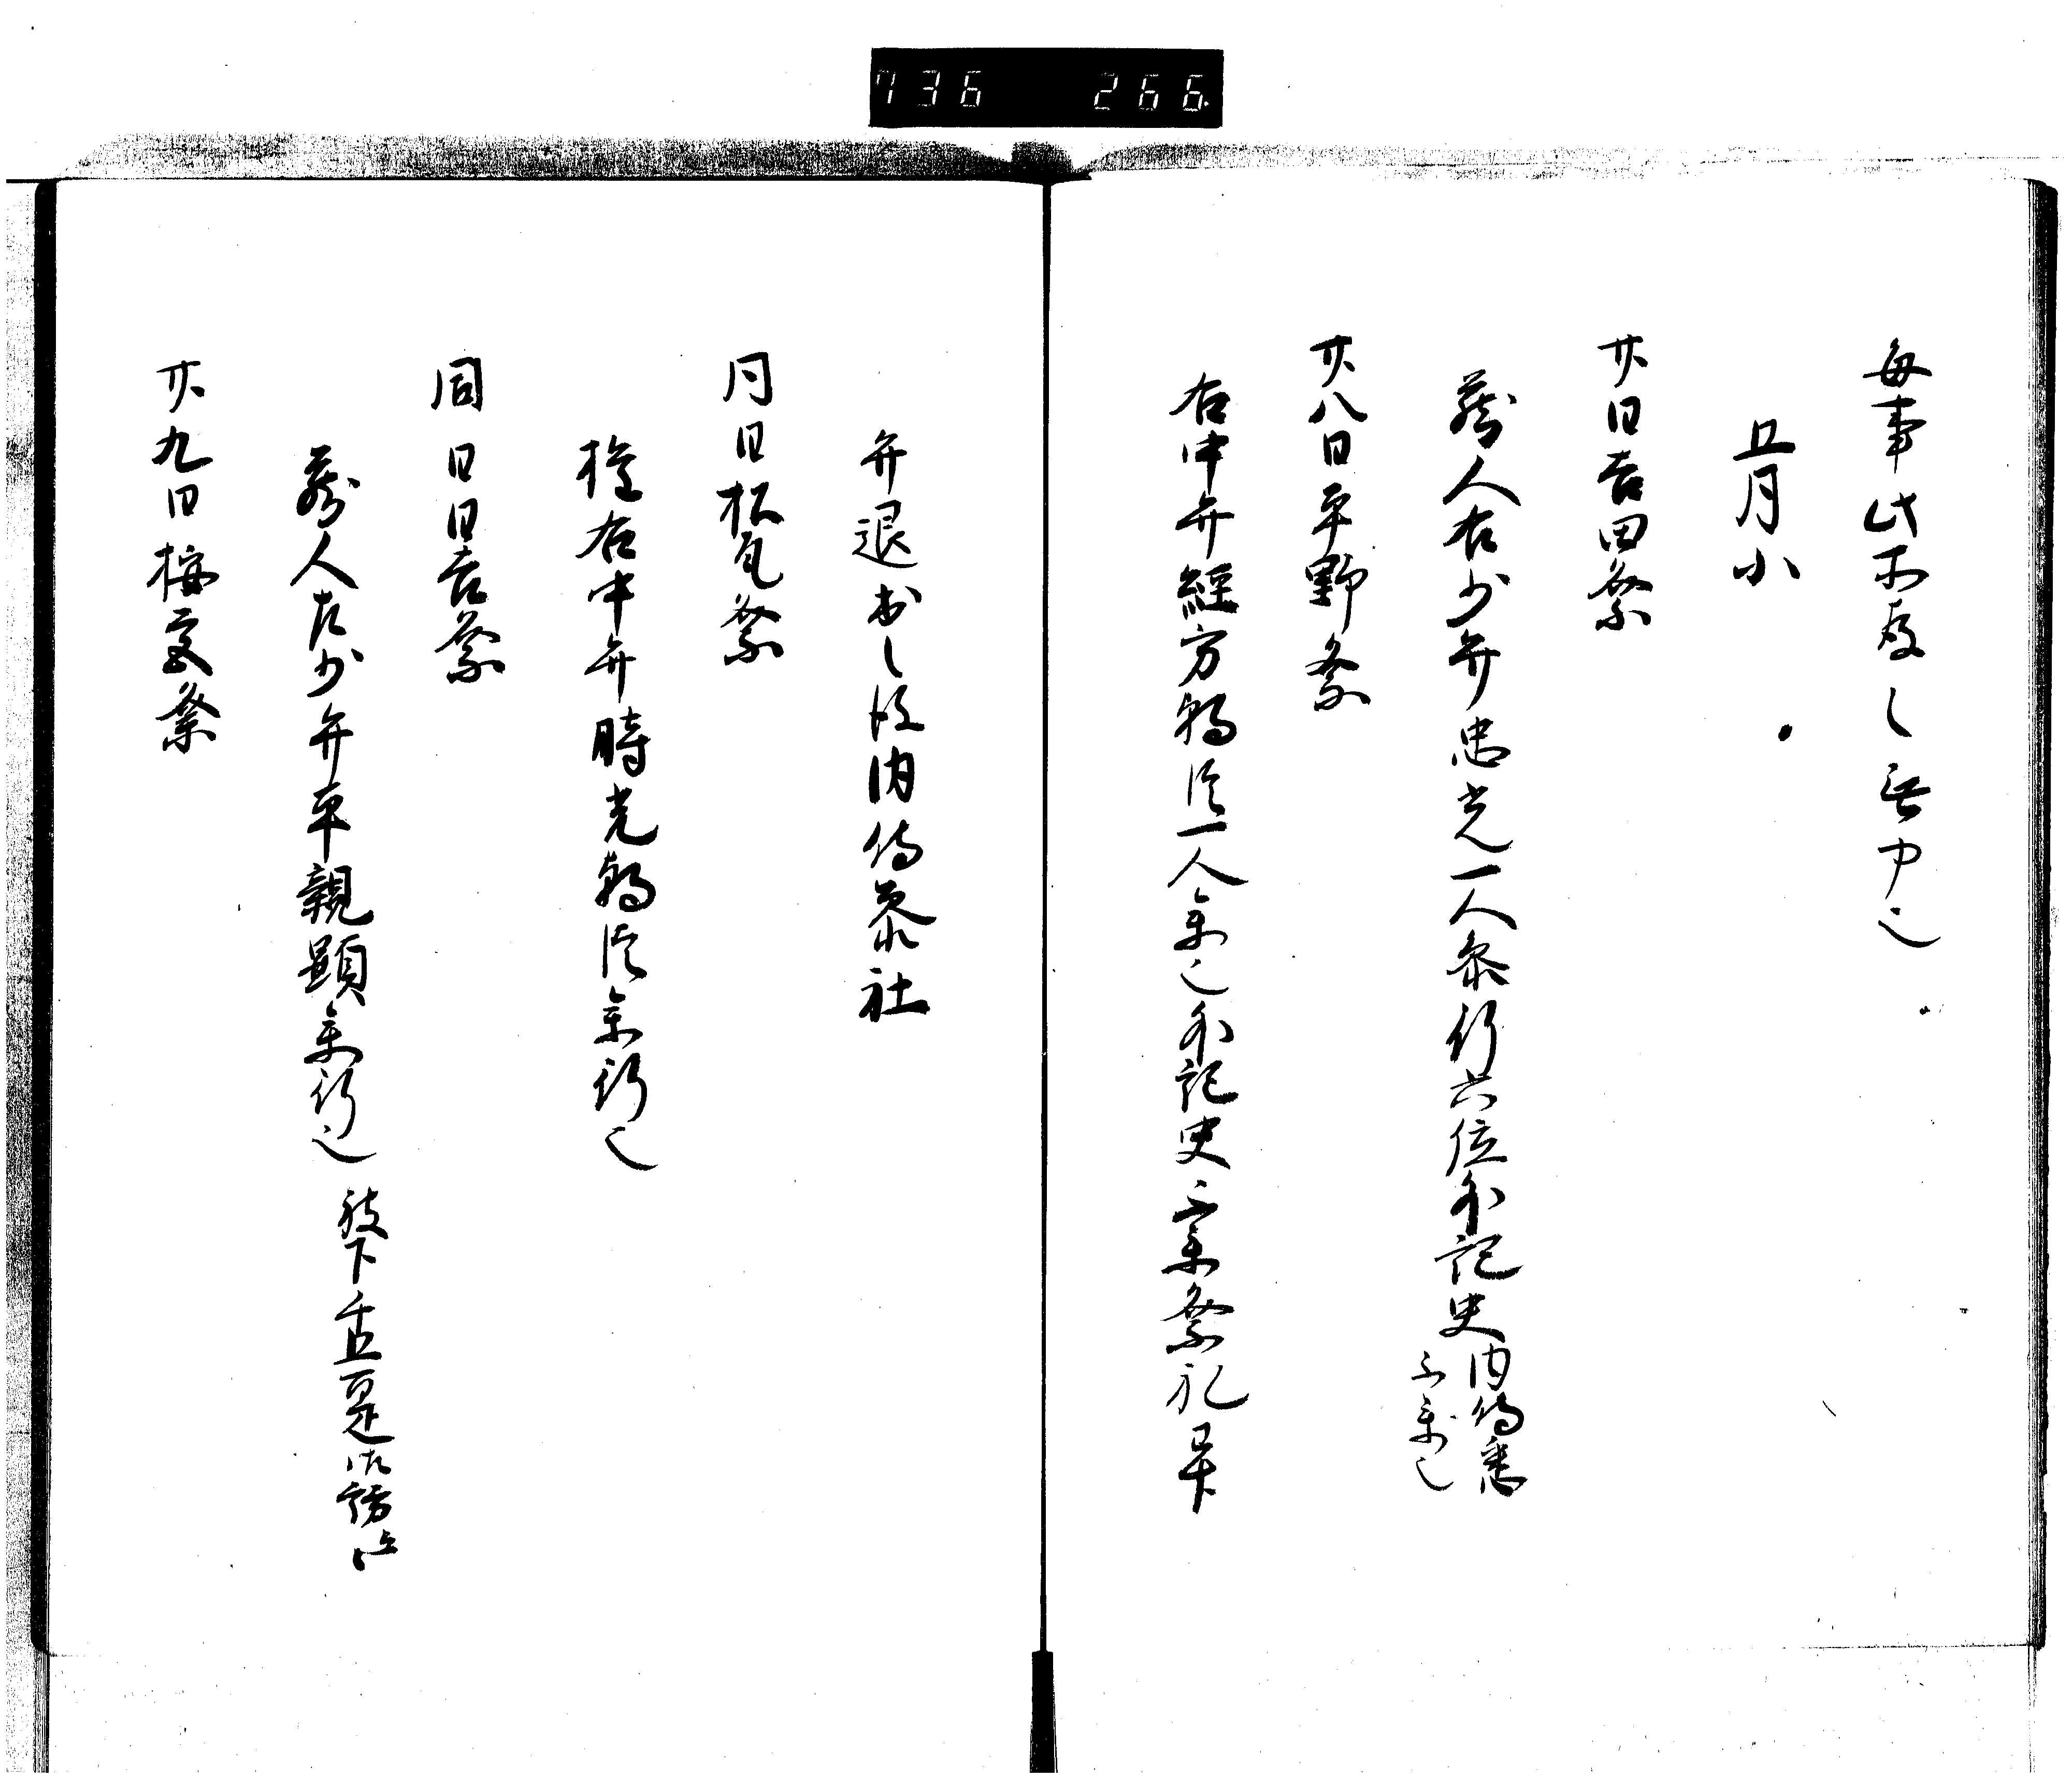 736 266
毎事此不及之無申之
五月小
廿日吉田祭
蔵人右少弁忠光一人参行六位外記史内侍悉
不参之
廿八日平野祭
右中弁経方朝臣一人参之外記史不参祭礼畢
弁退出之後内侍参社
同日松尾祭
権右中弁時光朝臣参行之
同日日吉祭
蔵人左少弁平親顕参行之被下五百疋御訪云々
廿九日梅宮祭